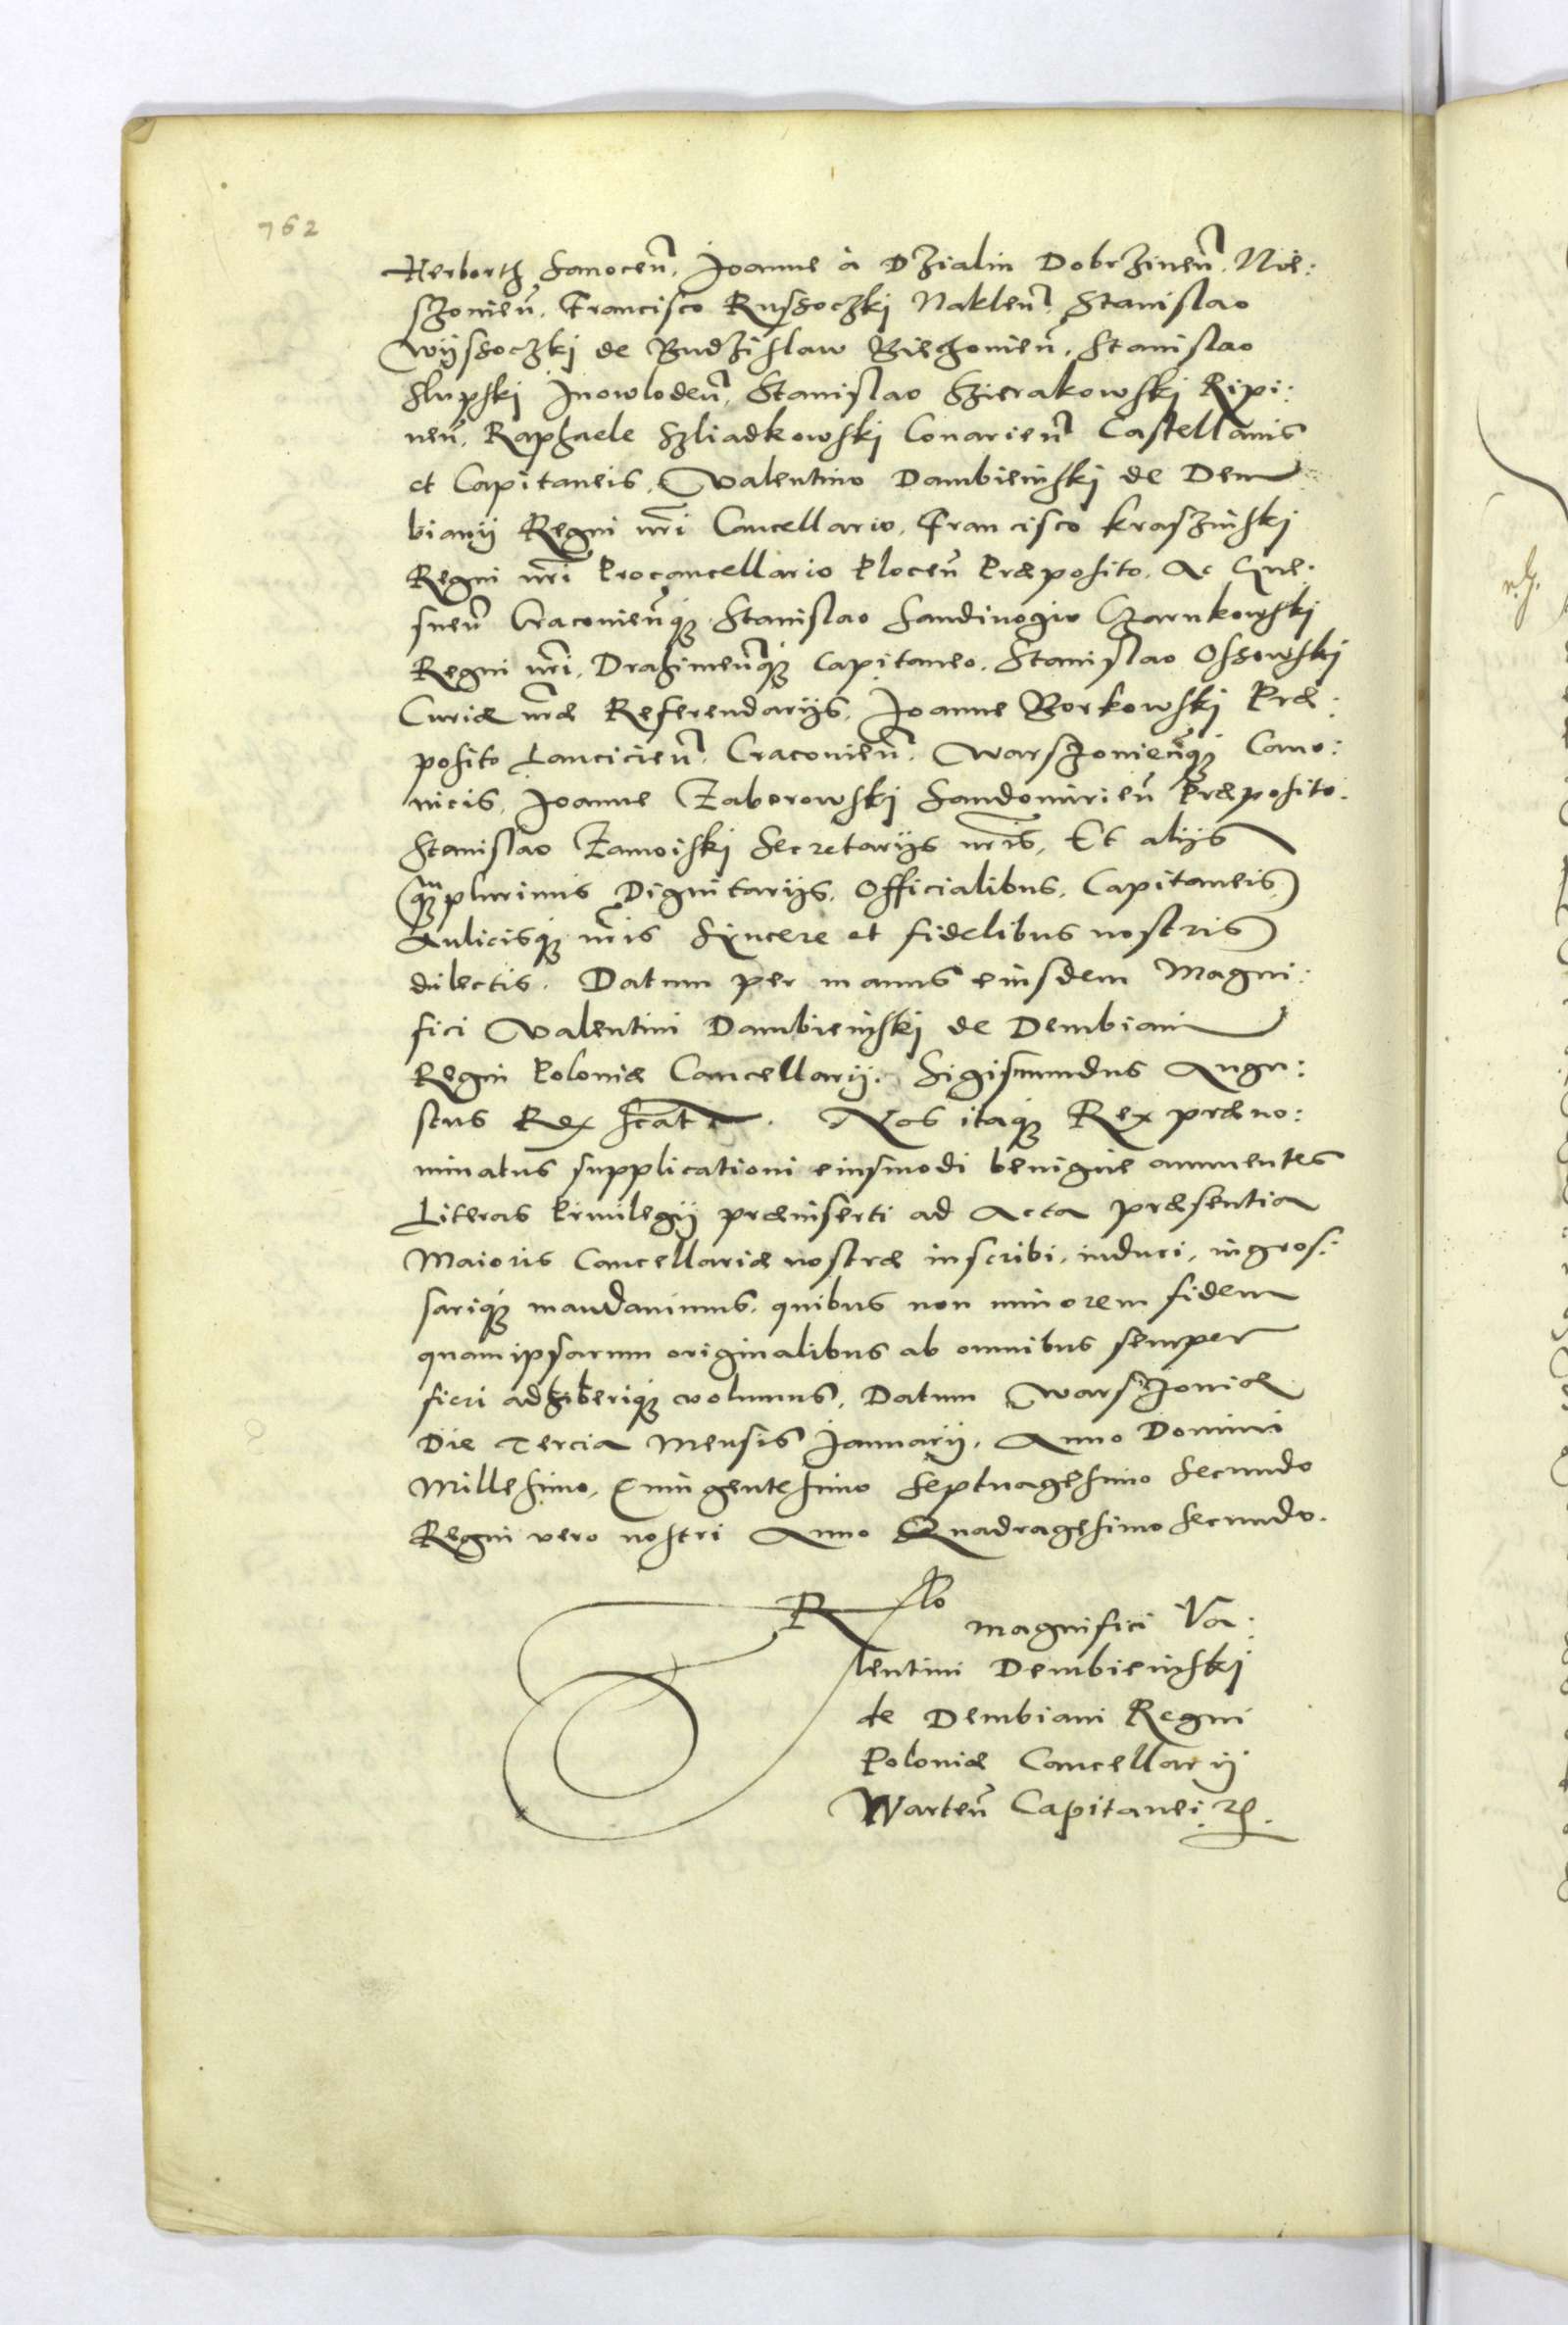 762
Herborth Sanocen̄, Joanne à Dzialin Dobrzinen̄, Nie:
szonien̄, Francisco Russoczkj Naklen̄, Stanislao
Wijssoczkj de Budzislaw Biechonien̄, Stanislao
Slupskj Jnowloden̄, Stanislao Szierakowskj Ripi:
nen̄, Raphaele Szliadkowskj Conarien̄ Castellanis
et Capitaneis, Valentino Dambieinskj de Dem
bianÿ Regni nr̄i Cancellario, Francisco Kraszinskj
Regni nr̄i Procancellario Plocen̄ Præposito, Ac Gne:
snen̄ Cracovien̄q; Stanislao Sandivogio Czarnkowskj
Regni nr̄i, Drahimen̄q; Capitaneo, Stanislao Ossowskj
Curiæ nr̄æ Referendarijs, Joanne Borkowskj Præ:
posito Lancicien̄, Cracovien̄, Warszovien̄q; Cano:
nicis, Joanne Zaborowskj Sandomirien̄ Præposito,
Stanislao Zamoiskj Secretarijs nr̄is, Et alijs
q;mplurimis Dignitarijs, Officialibus, Capitaneis,
Aulicisq; nr̄is Syncere et fidelibus nostris
dilectis. Datum per manus eiusdem Magni:
fici Valentini Dambieinskj de Dembiani
Regni Poloniæ Cancellarij. Sigismundus Augu:
stus Rex sc̄at. Nos itaq; Rex præno:
minatus supplicationi eiusmodi benigne annuentes
Literas Privilegij præinserti ad Acta præsentia
Maioris Cancellariæ nostræ inscribi, induci, ingros:
sariq; mandavimus, quibus non minorem fidem
quam ipsarum originalibus ab omnibus semper
fieri adhiberiq; volumus, Datum Warszoviæ
Die Tercia Mensis Januarij, Anno Domini
Millesimo, Quingentesimo Septuagesimo Secundo
Regni vero nostri Anno Quadragesimo Secundo.
Rlo Magnifici Va:
lentini Dembieinskj
de Dembiani Regni
Poloniæ Cancellarij
Warten̄ Capitanei